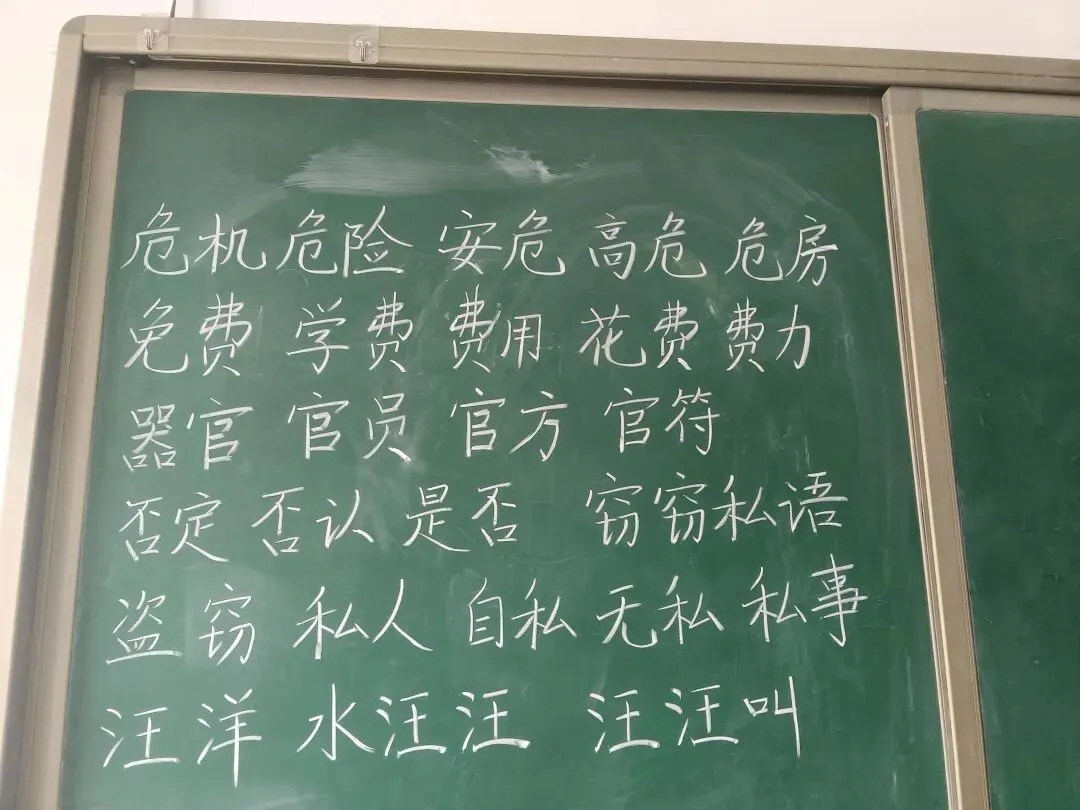 危机 危险 安危 高危 危房
免费 学费 费用 花费 费力
器官 官员 官方 官符
否定 否认 是否 窃窃私语
盗窃 私人 自私 无私 私事
汪洋 水汪汪 汪汪叫